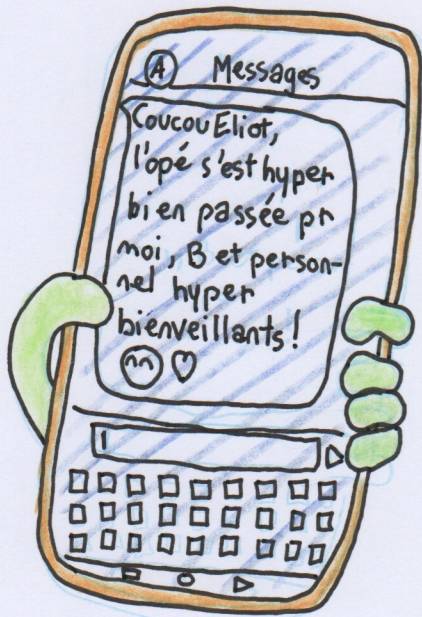 A Messages
Coucou Eliot,
l'opé s'est hyper
bien passée pr
moi, B et person-
nel hyper
bienveillants!